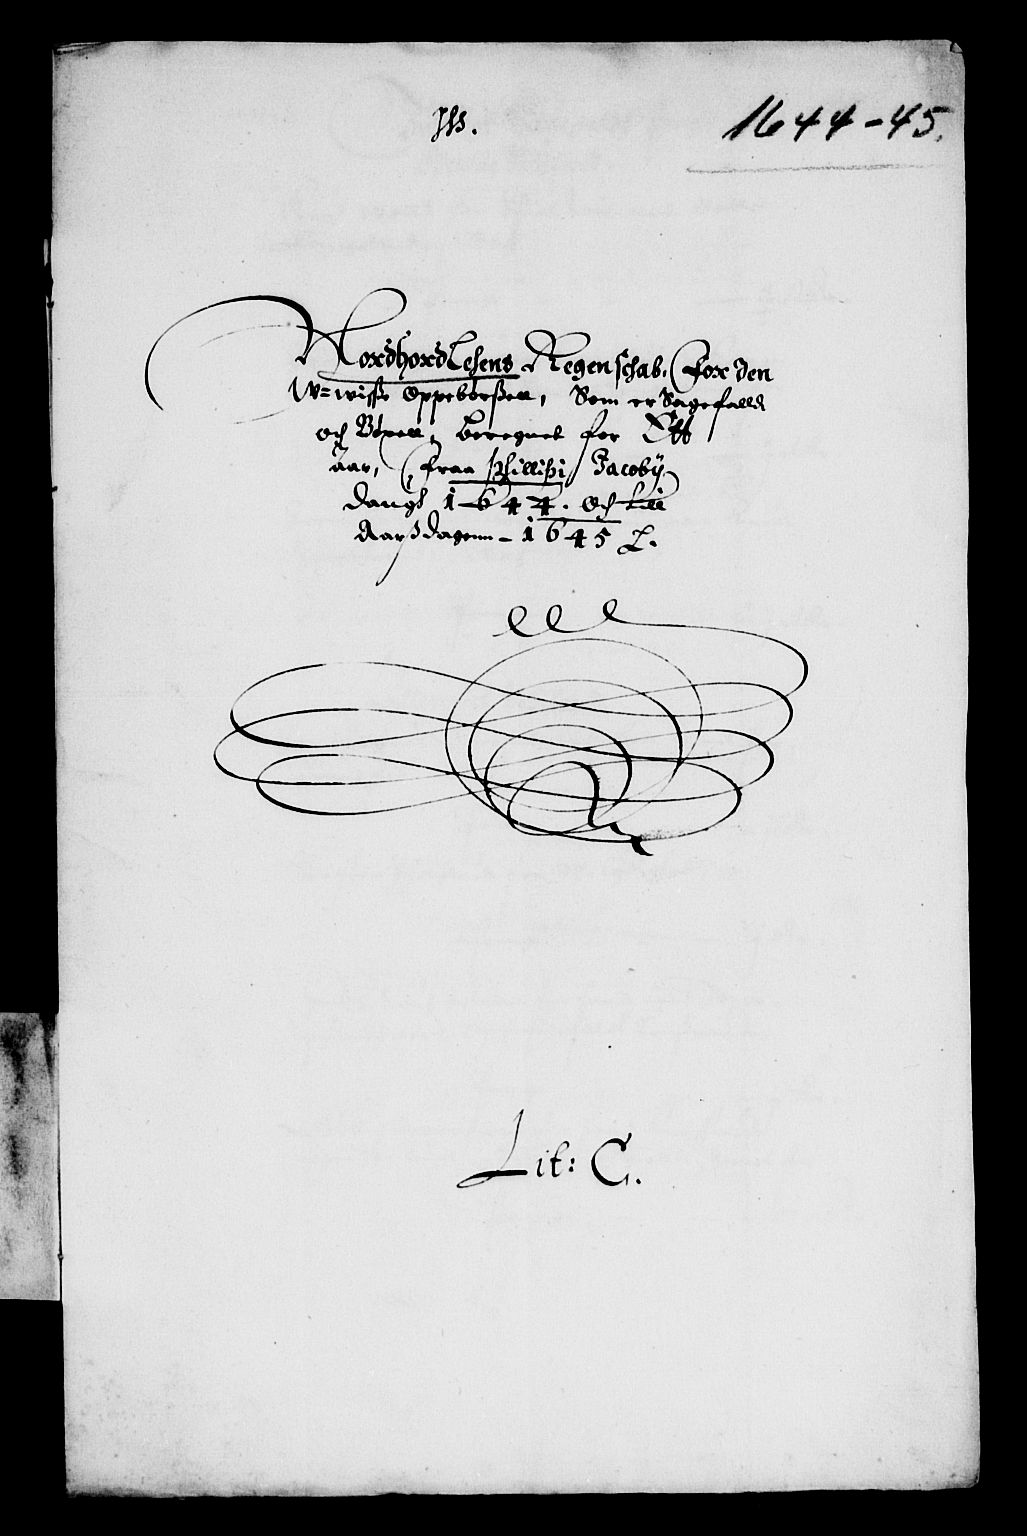 Jhs.
1644-45.
Nordhordlehens Regenschab, for den
W=wisse Oppebørsell, Som er Sagefalld
och Bøxell, beregnet for Ett
Aar, fraa Phillippi Jacobÿ
daugh 1644. Och till
Aarsdagenn - 1645
Lit: C.